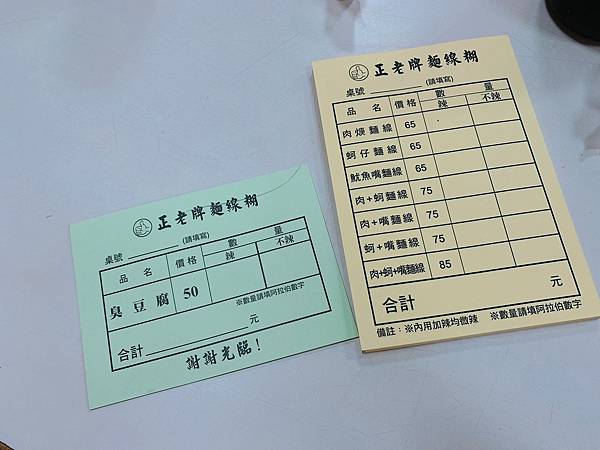 正老牌麵線糊
桌號 (請填寫)
品名 價格 數量
辣 不辣
臭豆腐 50
※數量請填阿拉伯數字
合計 元
謝謝光臨!
正老牌麵線糊
桌號 (請填寫)
品名 價格 數量
辣 不辣
肉焿麵線 65
蚵仔麵線 65
魷魚嘴麵線 65
肉+蚵麵線 75
肉+嘴麵線 75
蚵+嘴麵線 75
肉+蚵+嘴麵線 85
合計 元
備註:※內用加辣均微辣 ※數量請填阿拉伯數字